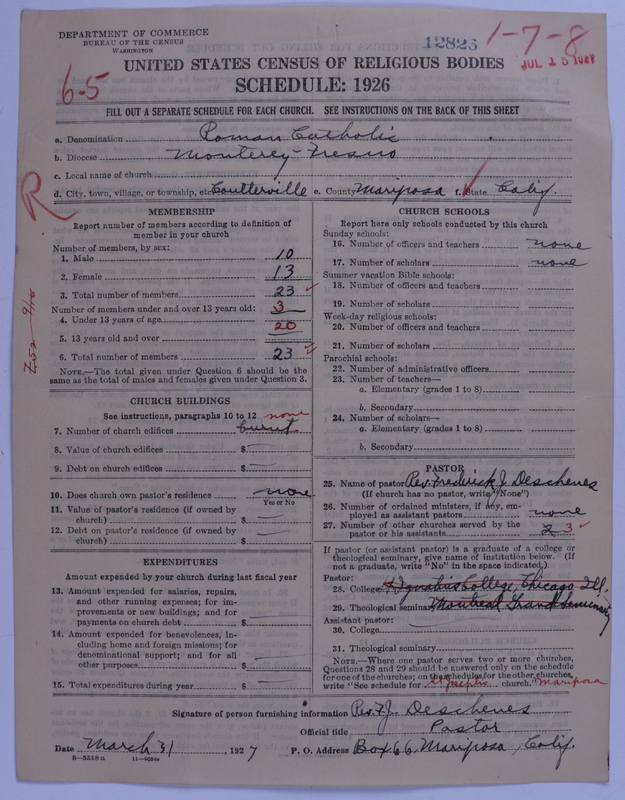 DEPARTMENT OF COMMERCE
BUREAU OF THE CENSUS
WASHINGTON
12826
1-7-8
UNITED STATES CENSUS OF RELIGIOUS BODIES
SCHEDULE: 1926
6-5
FILL OUT A SEPARATE SCHEDULE FOR EACH CHURCH. SEE INSTRUCTIONS ON THE BACK OF THIS SHEET
a. Denomination Roman Catholic
b. Diocese Monterey-Fresno
c. Local name of church
d. City, town, village, or township, etc. Coulterville e. County Mariposa f. State Calif.
R
MEMBERSHIP
Report number of members according to definition of
member in your church
Number of members, by sex:
1. Male 10
2. Female 13
3. Total number of members 23
Number of members under and over 13 years old:
4. Under 13 years of age 3
5. 13 years old and over 20
6. Total number of members 23
NOTE.—The total given under Question 6 should be
same as the total of males and females given under Question 3.
CHURCH BUILDINGS
See instructions, paragraphs 10 to 12 none
7. Number of church edifices burnt
8. Value of church edifices $
9. Debt on church edifices $
10. Does church own pastor's residence none
Yes or No
11. Value of pastor's residence (if owned by
church) $
12. Debt on pastor's residence (if owned by
church) $
EXPENDITURES
Amount expended by your church during last fiscal year
13. Amount expended for salaries, repairs,
and other running expenses; for im-
provements or new buildings; and for
payments on church debt $
14. Amount expended for benevolences, in-
cluding home and foreign missions; for
denominational support; and for all
other purposes $
15. Total expenditures during year $
CHURCH SCHOOLS
Report here only schools conducted by this church
Sunday schools:
16. Number of officers and teachers none
17. Number of scholars none
Summer vacation Bible schools:
18. Number of officers and teachers
19. Number of scholars
Week-day religious schools:
20. Number of officers and teachers
21. Number of scholars
Parochial schools:
22. Number of administrative officers
23. Number of teachers—
a. Elementary (grades 1 to 8)
b. Secondary
24. Number of scholars—
a. Elementary (grades 1 to 8)
b. Secondary
PASTOR
25. Name of pastor Rev. Fredrick J. Deschenes
(If church has no pastor, write "None")
26. Number of ordained ministers, if any, em-
ployed as assistant pastors none
27. Number of other churches served by the
pastor or his assistants 2 3
If pastor (or assistant pastor) is a graduate of a college or
theological seminary, give name of institution below. (If
not a graduate, write "No" in the space indicated.)
Pastor:
28. College St Ignatius College, Chicago Ill.
29. Theological seminary Montreal Grand Seminary
Assistant pastor:
30. College
31. Theological seminary
NOTE.—Where one pastor serves two or more churches,
Questions 28 and 29 should be answered only on the schedule
for one of the churches; on the schedules for the other churches,
write "See schedule for St Josephs church. Mariposa
Signature of person furnishing information Rev. F. J. Deschenes
Official title Pastor
Date March 31, 1927 P. O. Address Box 66, Mariposa, Calif.
8-5518 a